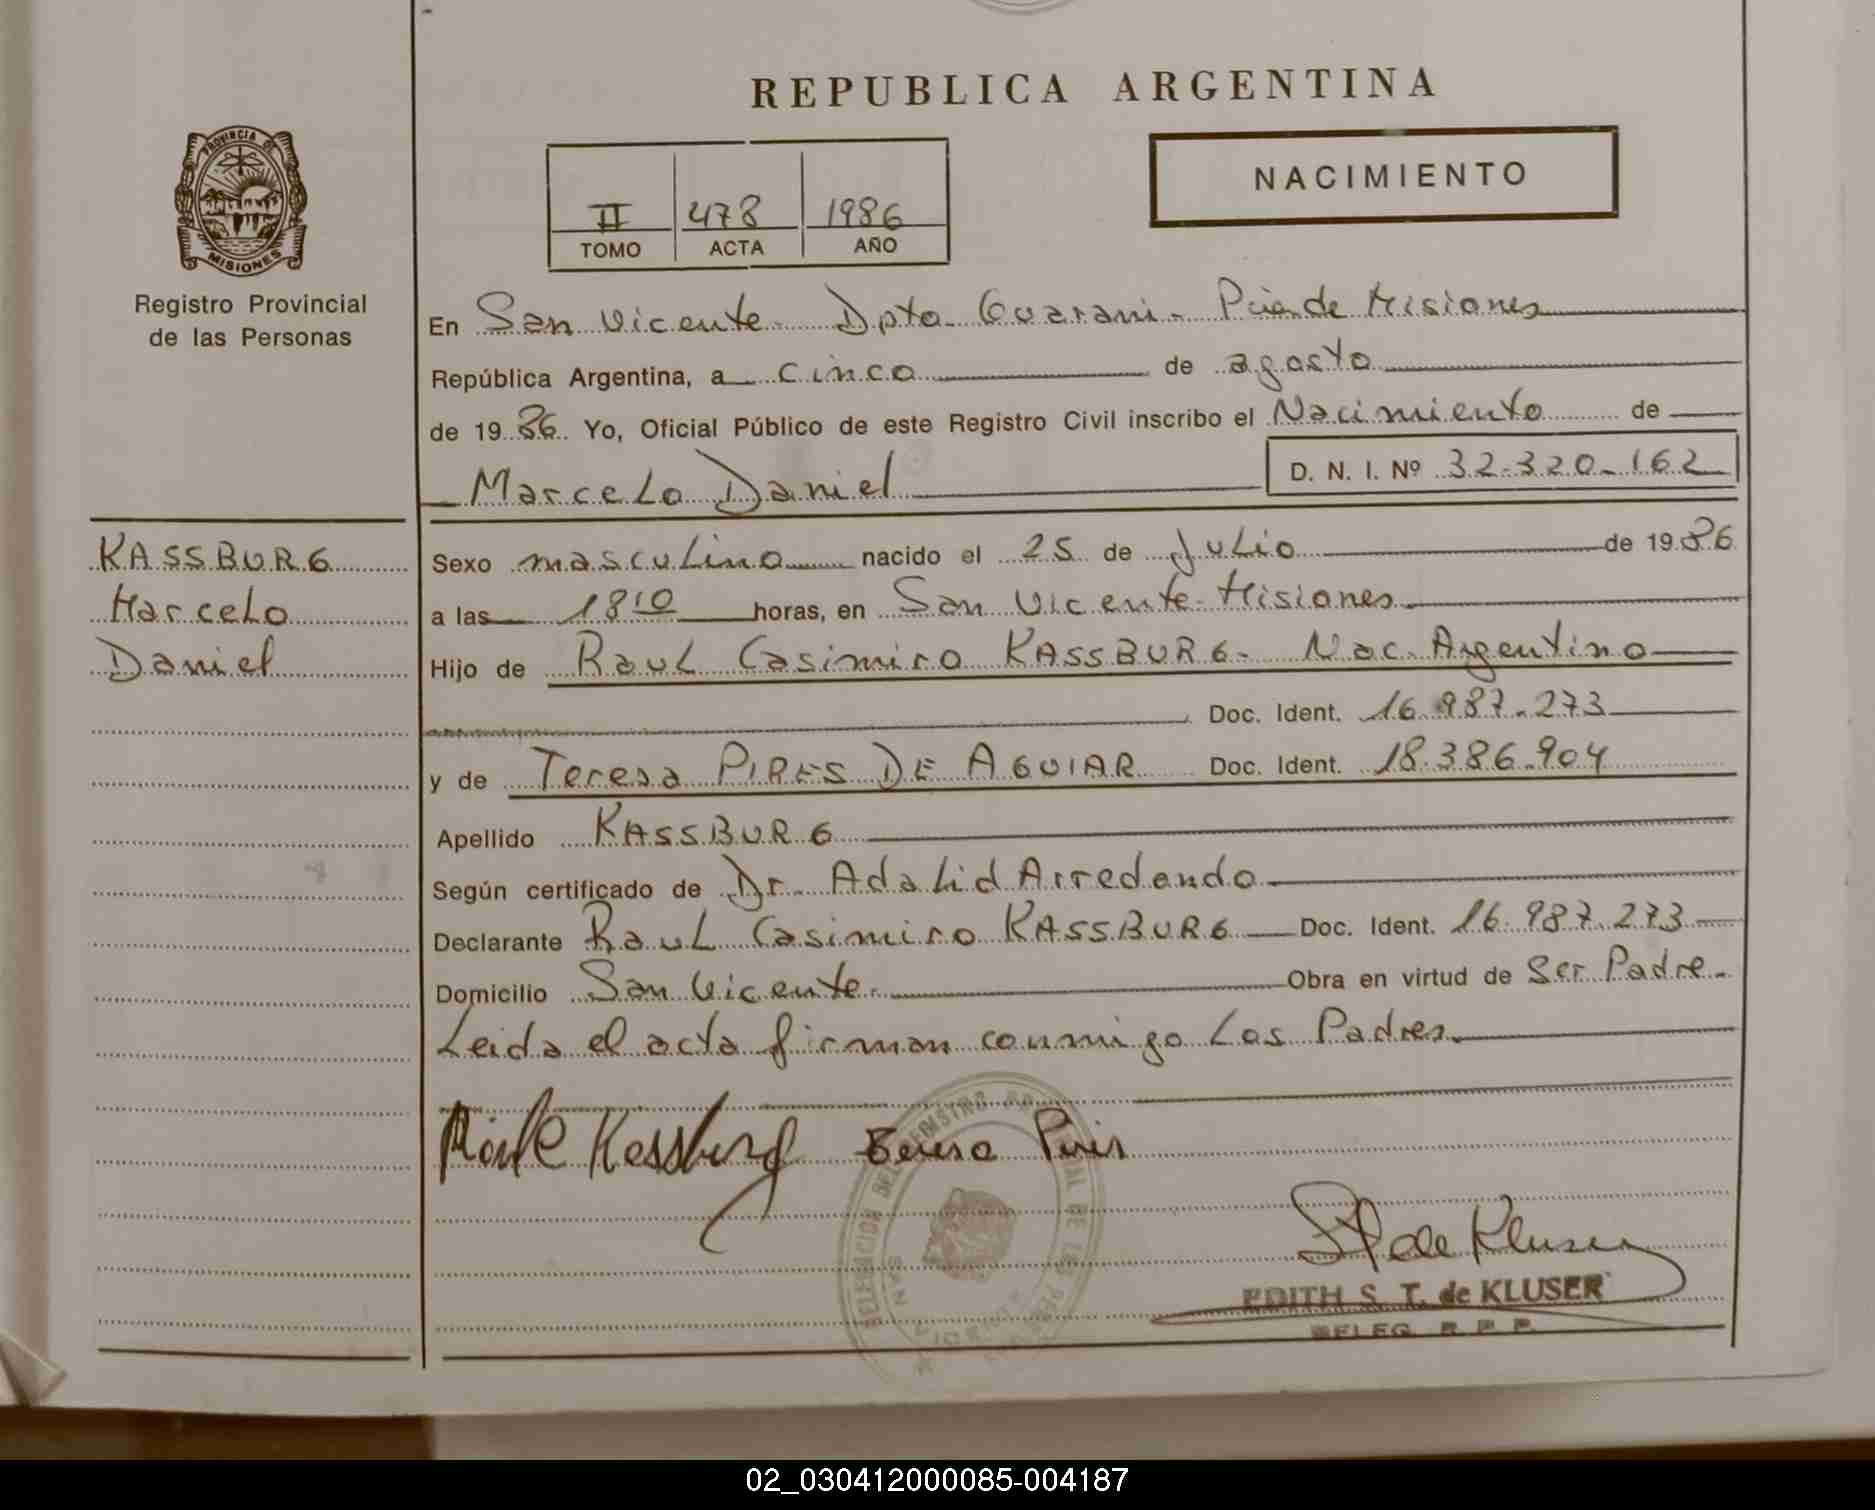 REPUBLICA ARGENTINA
PROVINCIA DE
MISIONES
Registro Provincial
de las Personas
II 478 1986
TOMO ACTA AÑO
NACIMIENTO
En San Vicente - Dpto Guarani - Pcia de Misiones
República Argentina, a cinco de agosto
de 1986 Yo, Oficial Público de este Registro Civil inscribo el Nacimiento de
Marcelo Daniel D. N. I. Nº 32.320.162
KASSBURG
Marcelo
Daniel
Sexo masculino nacido el 25 de Julio de 1986
a las 18 10 horas, en San Vicente - Misiones
Hijo de Raul Casimiro KASSBURG - Nac. Argentino
Doc. Ident. 16.987.273
y de Teresa PIRES DE AGUIAR Doc. Ident. 18.386.904
Apellido KASSBURG
Según certificado de Dr. Adalid Arredondo
Declarante Raul Casimiro KASSBURG Doc. Ident. 16.987.273
Domicilio San Vicente. Obra en virtud de Ser Padre.
Leida el acta firman conmigo Los Padres.
Kassburg
de Kluser
EDITH S. T. de KLUSER
DELEG. R. P. P.
02_030412000085-004187